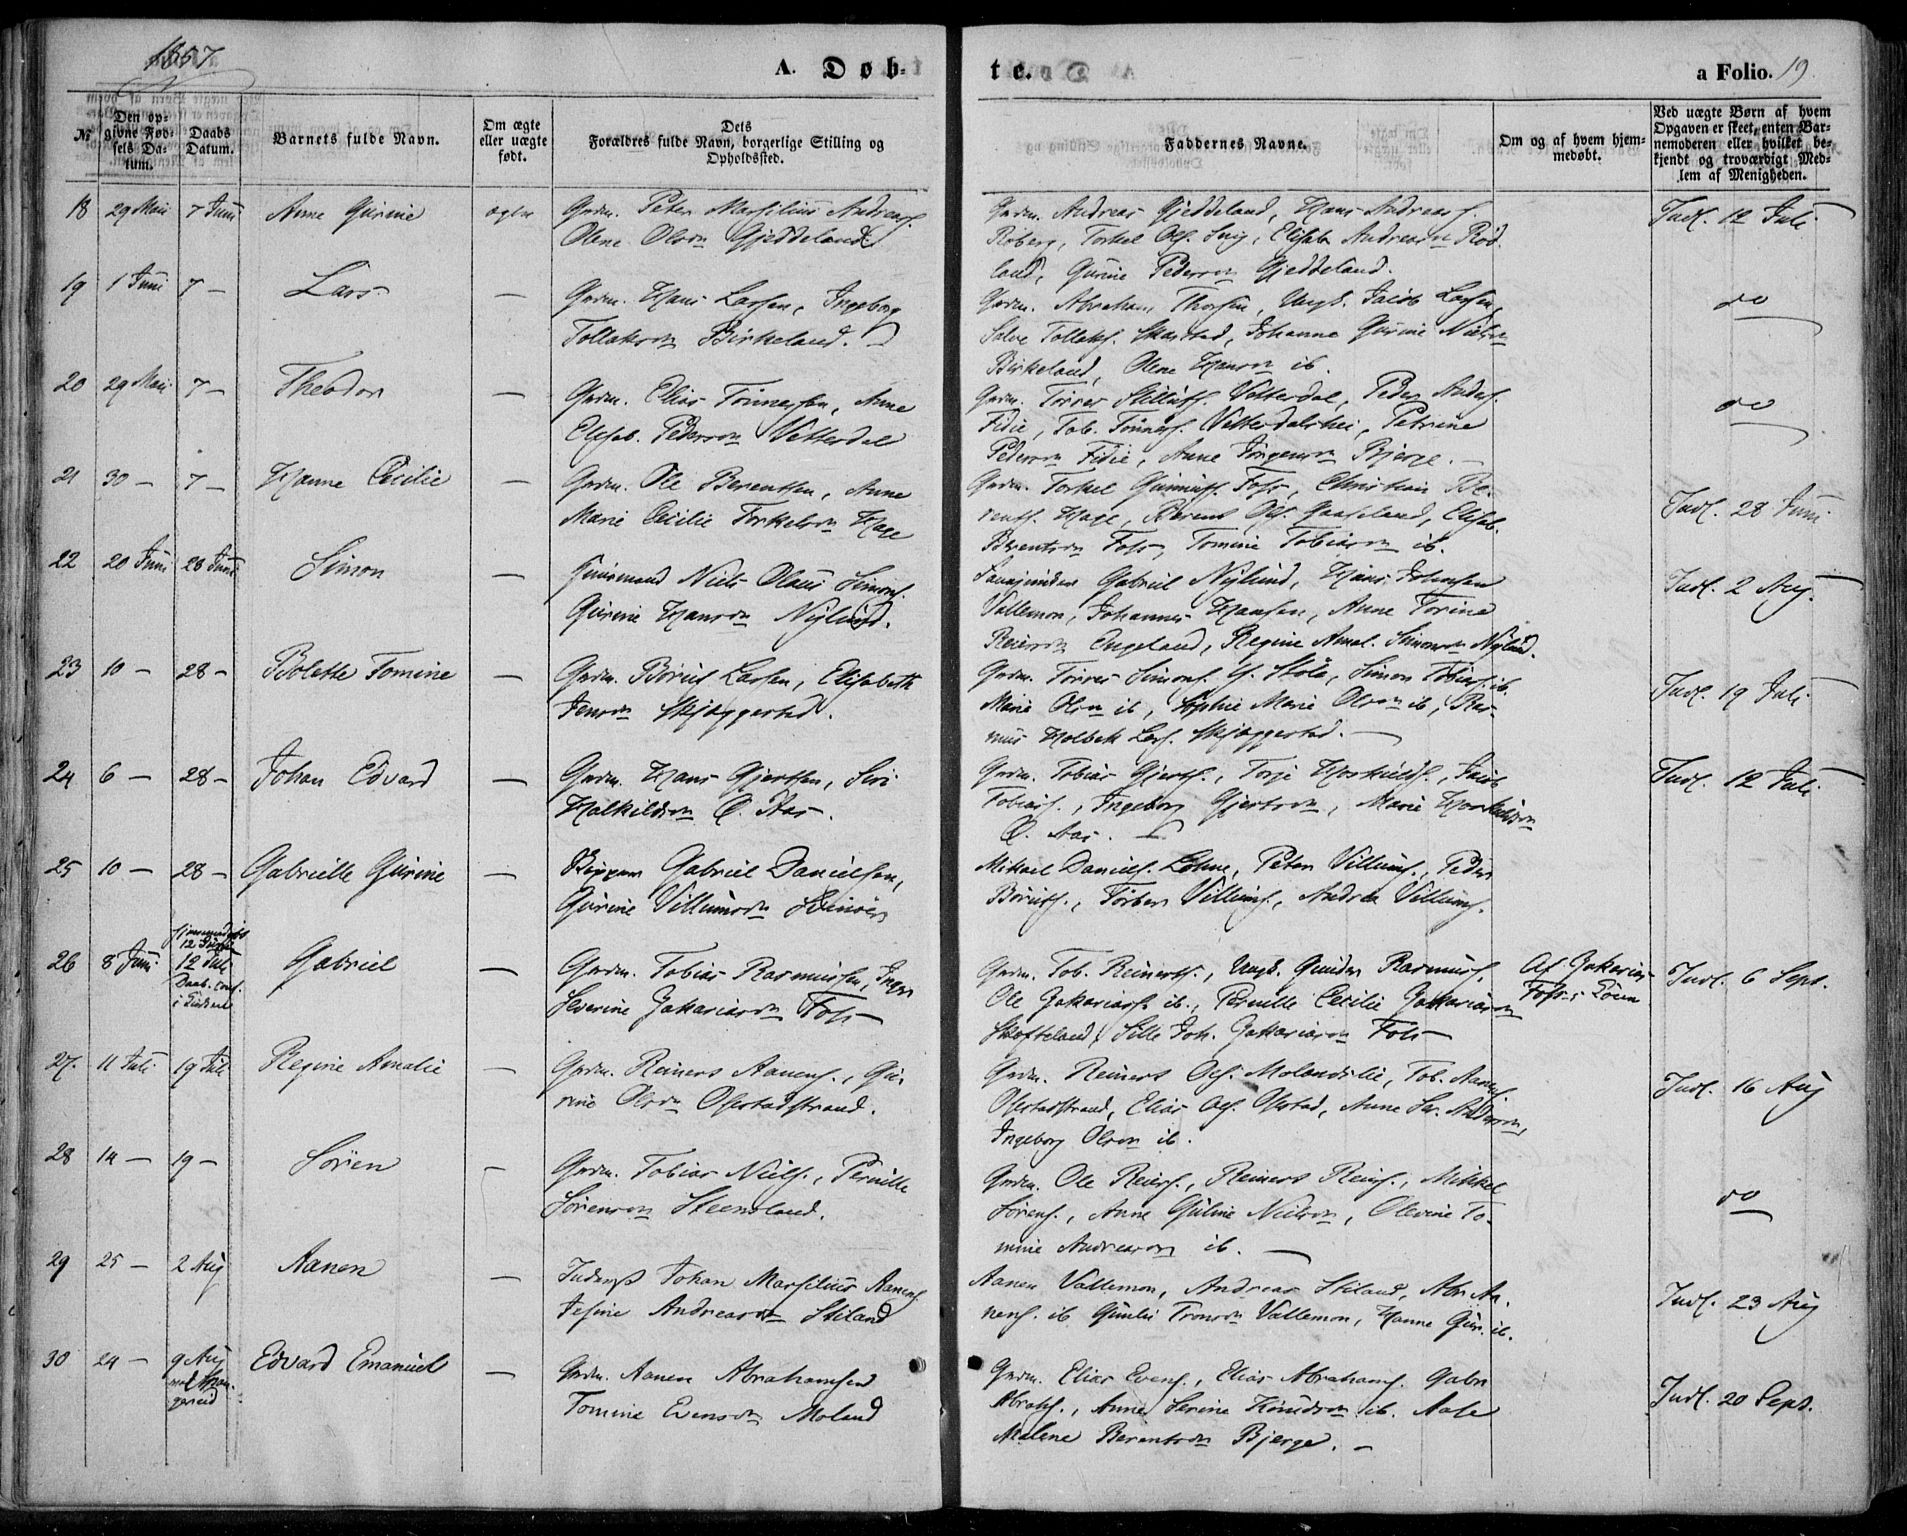 1857
A. Døb-
te.
a Folio. 19.
№
Den op-
givne Fød-
sels Da-
tum.
Daabs
Datum.
Barnets fulde Navn.
Om ægte
eller uægte
født.
Dets
Forældres fulde Navn, borgerlige Stilling og
Opholdssted.
Faddernes Navne.
Om og af hvem hjem-
medøbt.
Ved uægte Børn af hvem
Opgaven er skeet, enten Bar-
nemoderen eller hvilket be-
kjendt og troværdigt Med-
lem af Menigheden.
18 29 Mai 7 Juni Anne Gurine ægte Grdm. Peter Marsilius Andreass.
Olene Olsdn Gjeddeland
Grdm. Andreas Gjeddeland, Hans Andreass.
Roberg, Torkel Ols. Elisab. Andreasdn Rød-
land, Gurine Pedersdn Gjeddeland.
Indl. 12 Juli
19 1 Juni 7 — Lars — Grdm. Hans Larsen, Ingeborg
Tollaksdn Birkeland.
Grdm. Abraham Thorsen, Ungk. Jacob Larsen,
Salve Tollaks. Johanne Gurine Nielsdn
Birkeland, Olene Hansdn ib.
do
20 29 Mai 7 — Theodor — Grdm. Elias Tønnessen, Anne
Elisab. Pedersdn Vetterdal
Grdm. Torres Vetterdal, Peder Anders.
Fidie, Tob. Tønness. Vetterdalshei, Petrine
Pedersdn Fidie, Anne Jørgensdn Bjerge. —
do
21 30 — 7 — Hanne Cecilie — Grdm. Ole Berentsen, Anne
Marie Cecilie Torkelsdn Hage
Grdm. Torkel Foss, Christian Be-
rents. Hage, Berent Ols. Elisab.
Berentsdn Foss, Tomine Tobiasdn ib.
Indl. 28 Juni
22 20 Juni 28 Juni Simon — Huusmand Niels Olaus Simons.
Gurine Hansdn Nylund.
Gabriel Nylund, Hans Johnsen
Vallemon, Johannes Hansen, Anne Torine
Reiersdn Engeland, Regine Amal. Simonsdn Nylund.
Indl. 2 Aug.
23 10 — 28 — Bolette Tomine — Grdm. Børuf Larsen, Elisabeth
Jensdn Skjæggestad.
Grdm. Torres Simons. Simon ib.
Marie Olsdn ib, Sophie Marie Olsdn ib, Ras-
mus Holbek Lars. Skjæggestad. —
Indl. 19 Juli
24 6 — 28 — Johan Edvard — Grdm. Hans Gjertsen, Siri
Halkildsdn Ø. Aas.
Grdm. Tobias Gjerts., Torje Jacob
Tobias., Ingeborg Gjertsdn, Marie
Ø. Aas. —
Indl. 12 Juli
25 10 — 28 — Gabrielle Gurine — Skipper Gabriel Danielsen,
Gurine Villumsdn
Mikael Daniels. Lohne, Peter Villums., Peder
Børufs., Torber Villums., Andrea Villums.
26 8 Juni hjemmedøbt
12 Juli
Daab. conf.
i Kirken
Gabriel — Grdm. Tobias Rasmussen, Inger
Severine Zakariasdn Foss —
Grdm. Tob. Reinerts., Ungk. Gunder Rasmus.
Ole Zakarias. ib., Pernille Cecilie Zakariasdn
Skofteland, Sille Joh. Zakariasdn Foss —
Af Zakarias
Foss
Indl. 6 Sept.
27. 11 Juli 19 Juli Regine Amalie — Grdm. Reiners Aanens., Gu-
rine Olsdn Ofstadstrand.
Grdm. Reiners Ols. Tob. Aanens.
Ofstadstrand, Elias Ols. Ofstad, Anne
Ingeborg Olsdn ib.
Indl. 16 Aug
28 14 — 19 — Sören — Grdm. Tobias Niels., Pernille
Sörensdn Steensland.
Grdm. Ole Reiers., Reiners Reiers., Mikkel
Sörens., Anne Guline Nielsdn, Olevine To-
mine Andreasdn ib. —
do
29 25 — 2 Aug Aanen — Inderst Johan Marsilius Aanens.
Andreasdn Stiland
Aanen Vallemon, Andreas Stiland, Abr. Aa-
nens. ib Tronsdn Vallemon, Hanne Gur. ib.
Indl. 23 Aug
30 24 — 9 Aug
Edvard Emanuel — Grdm. Aanen Abrahamsen
Tomine Evensdn Moland
Grdm. Elias Evens., Elias Abrahams. Gabr.
Abrahs., Anne Serine Knudsdn ib. Aase
Malene Berentsdn Bjerge. —
Indl. 20 Sept.